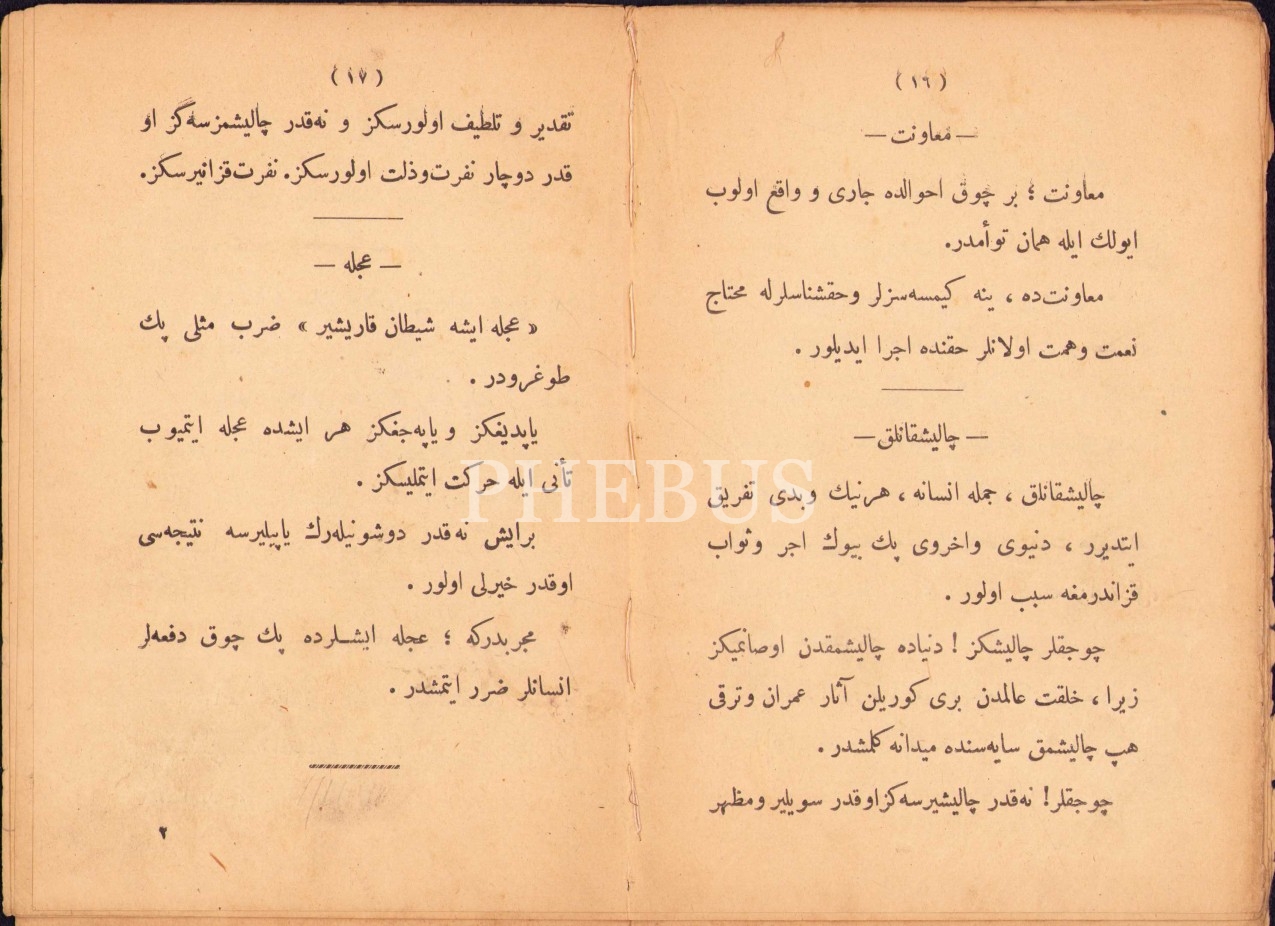 ( ١٦ )
— معاونت —
معاونت ؛ بر چوق احوالده جاری و واقع اولوب
ایولك ایله همان توأمدر.
معاونت‌ده ، ینه كیمسه‌سزلر وحقشناسلرله محتاج
نعمت وهمت اولانلر حقنده اجرا ایدیلور .
— چالیشقانلق —
چالیشقانلق ، جمله انسانه ، هرنیك وبدی تفریق
ایتدیرر ، دنیوی واخروی پك بیوك اجر وثواب
قزاندرمغه سبب اولور .
چوجقلر چالیشكز ! دنیاده چالیشمقدن اوصانمیكز
زیرا ، خلقت عالمدن بری كوریلن آثار عمران وترقی
هپ چالیشمق سایه‌سنده میدانه كلمشدر .
چوجقلر! نه‌قدر چالیشیرسه‌كزاوقدر سویلیر ومظهر
( ١٧ )
تقدیر و تلطیف اولورسكز و نه‌قدر چالیشمزسه‌گز او
قدر دوچار نفرت‌وذلت اولورسكز. نفرت‌قزانیرسكز.
— عجله —
« عجله ایشه شیطان قاریشیر » ضرب مثلی پك
طوغرودر .
یاپدیغكز ویاپه‌جغكز هر ایشده عجله ایتمیوب
تأنی ایله حركت ایتملیسكز .
برایش نه‌قدر دوشونیله‌رك یاپیلیرسه نتیجه‌سی
اوقدر خیرلی اولور .
مجربدركه ؛ عجله ایشلرده پك چوق دفعه‌لر
انسانلر ضرر ایتمشدر .
٢
PHEBUS